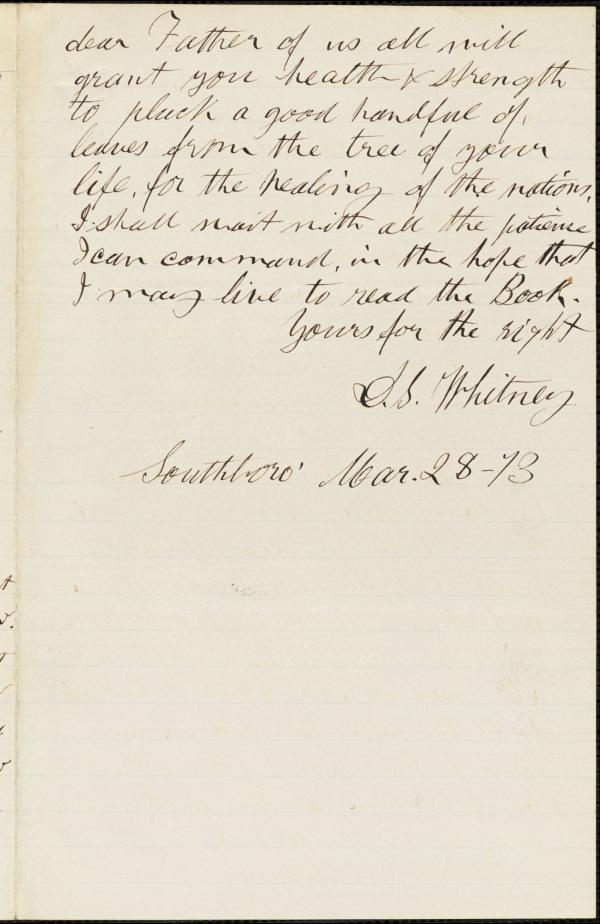 dear Father of us all will
grant you health & strength
to pluck a good handful of
leaves from the tree of your
life, for the healing of the nations.
I shall wait with all the patience
I can command, in the hope that
I may live to read the Book.
Yours for the right
D.S. Whitney
Southboro' Mar. 28-73